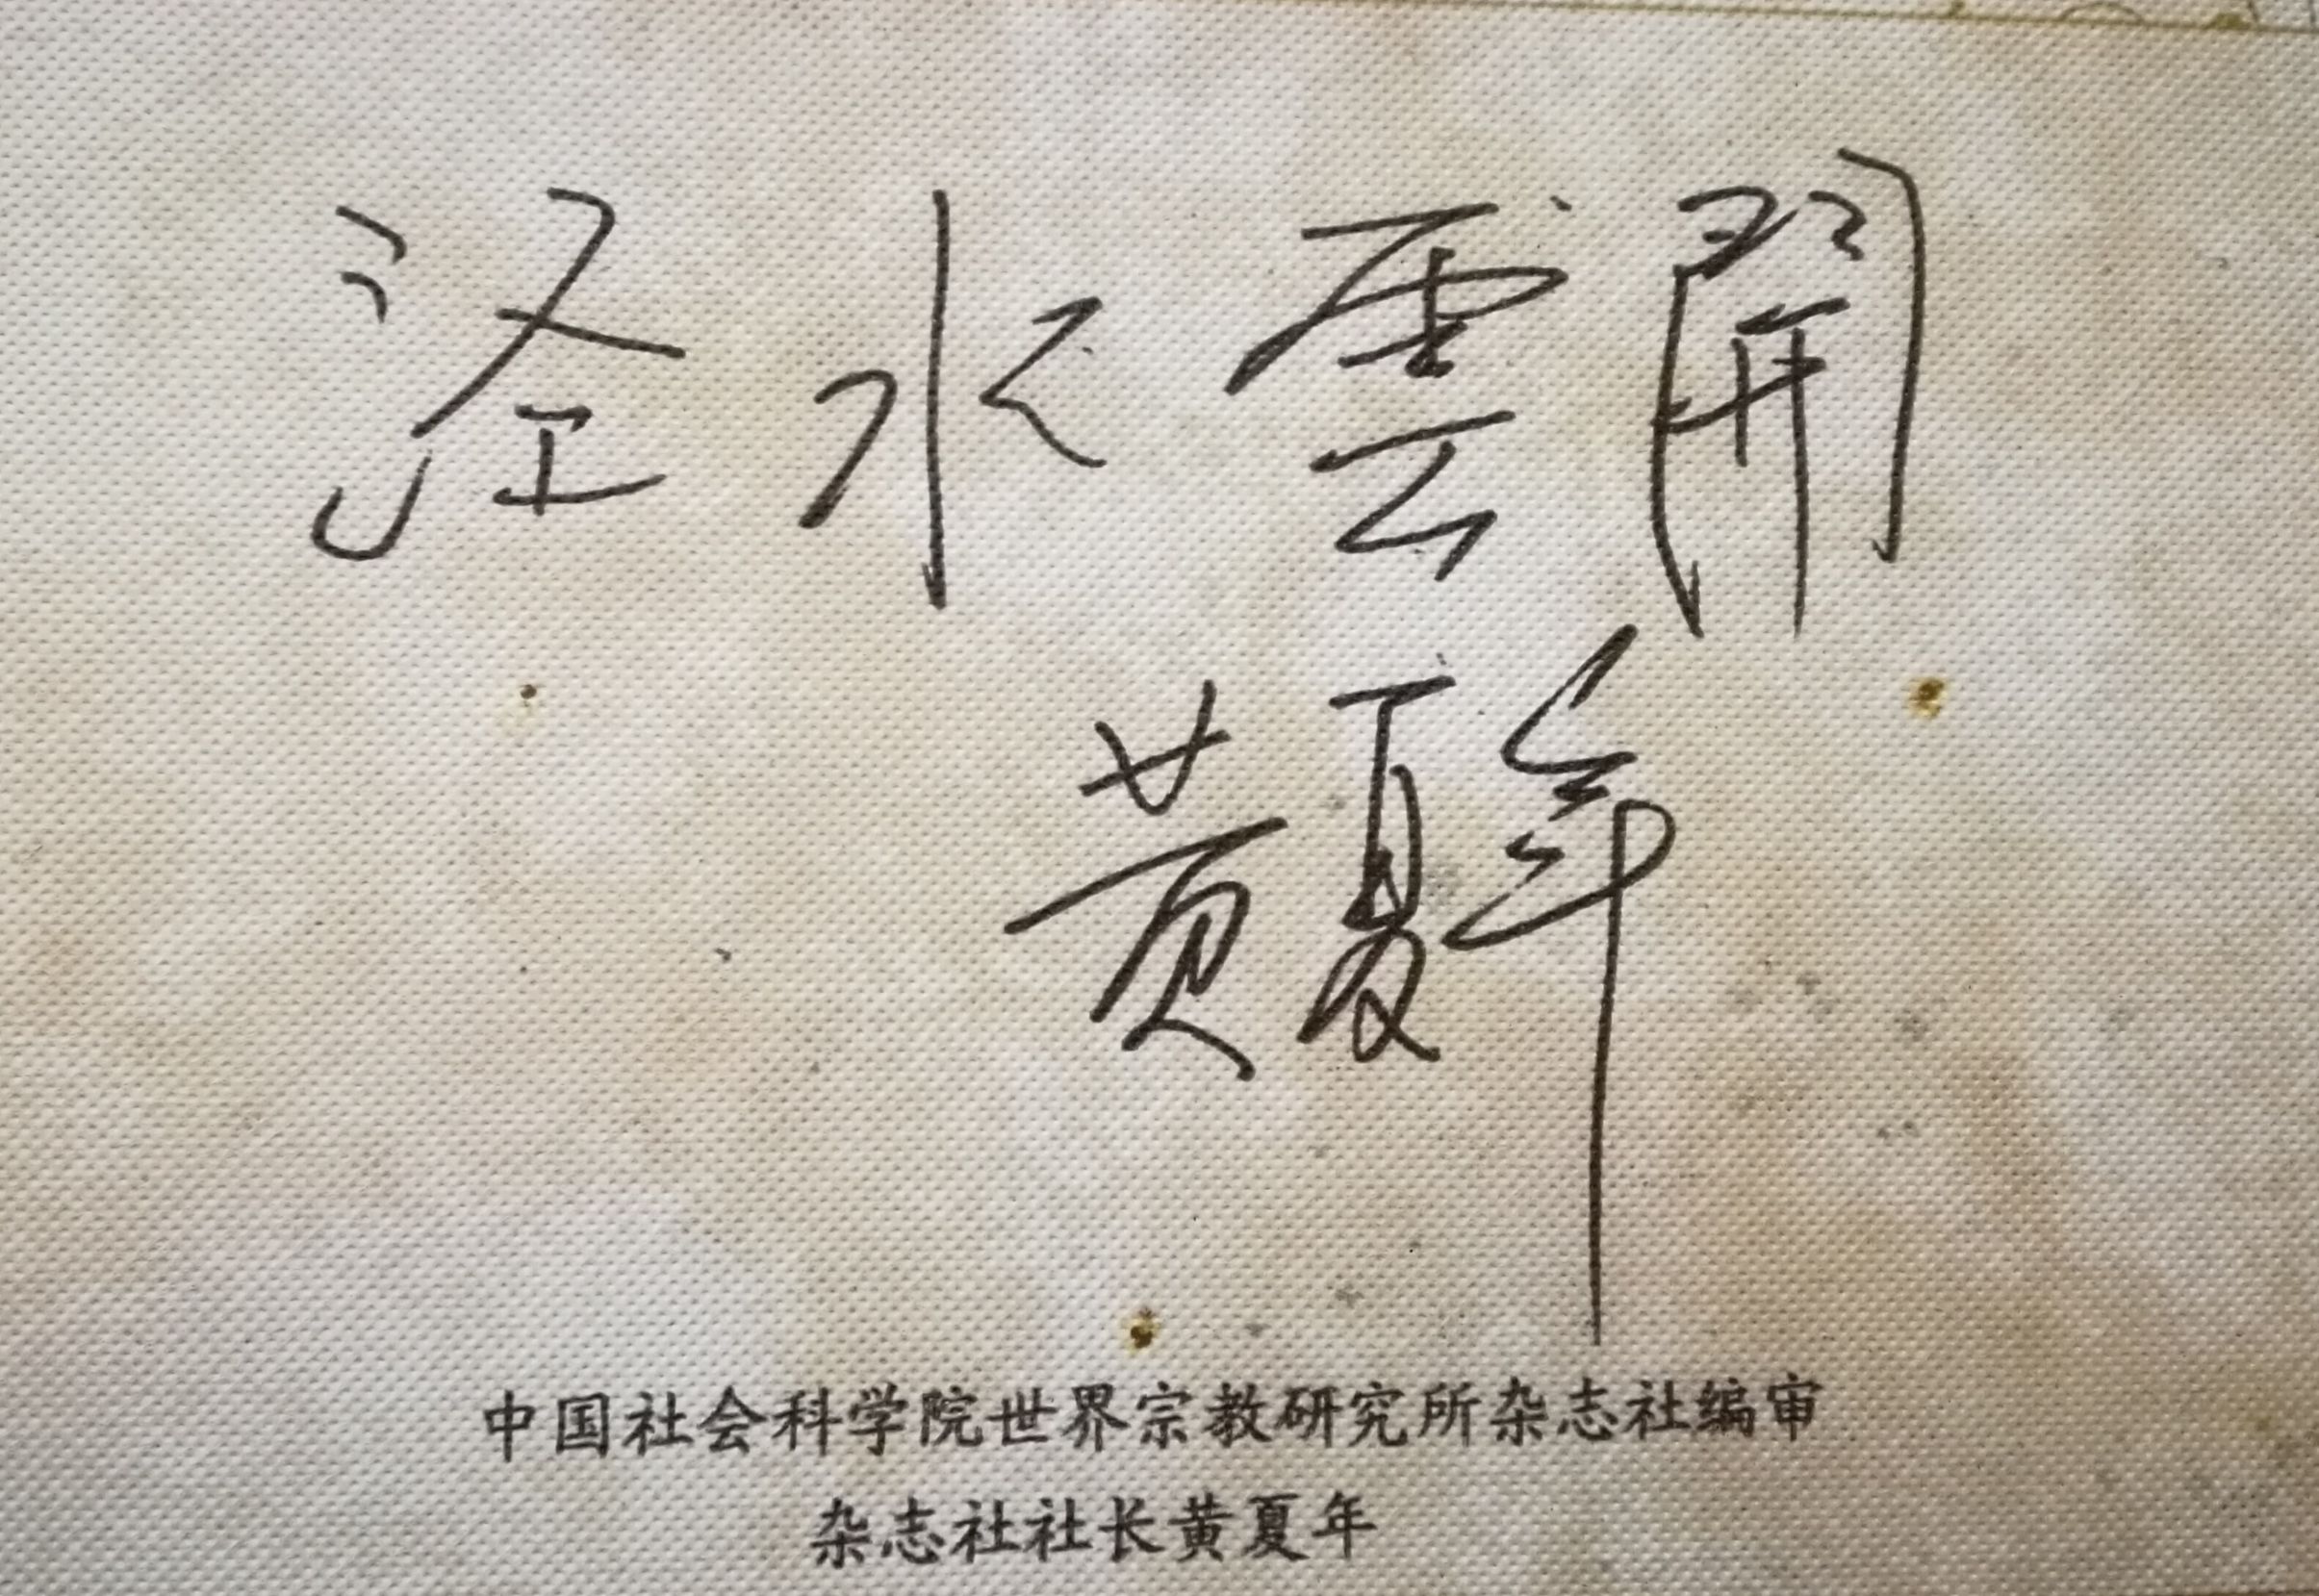 泾水雲開
黄夏年
中国社会科学院世界宗教研究所杂志社编审
杂志社社长黄夏年